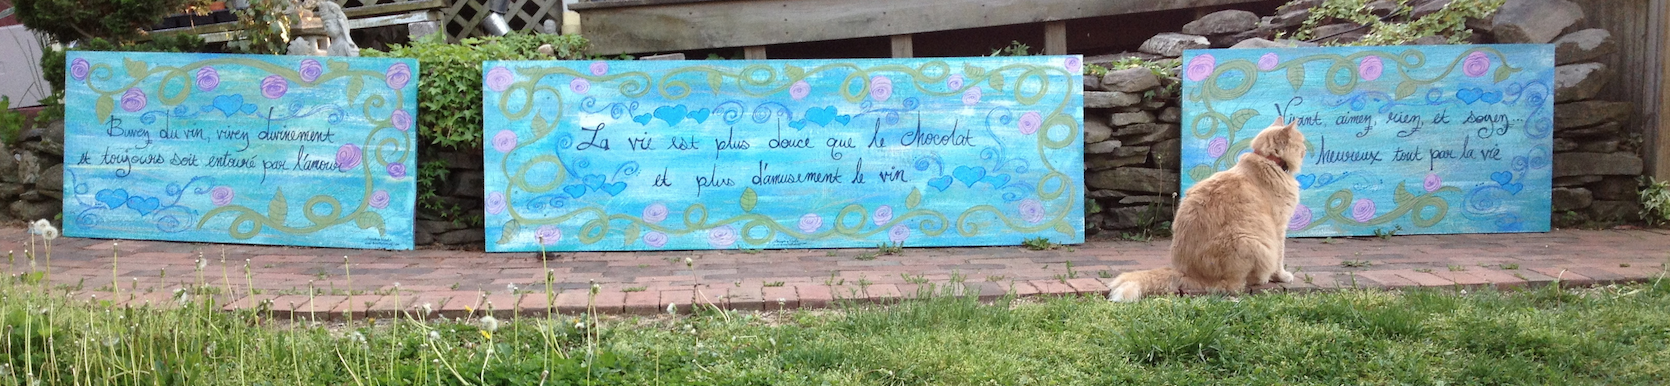 Buvez du vin, vivez divinement
et toujours soit entouré par l'amour
La vie est plus douce que le chocolat
et plus d'amusement le vin
aimez, riez, et soyez...
heureux tout par la vie